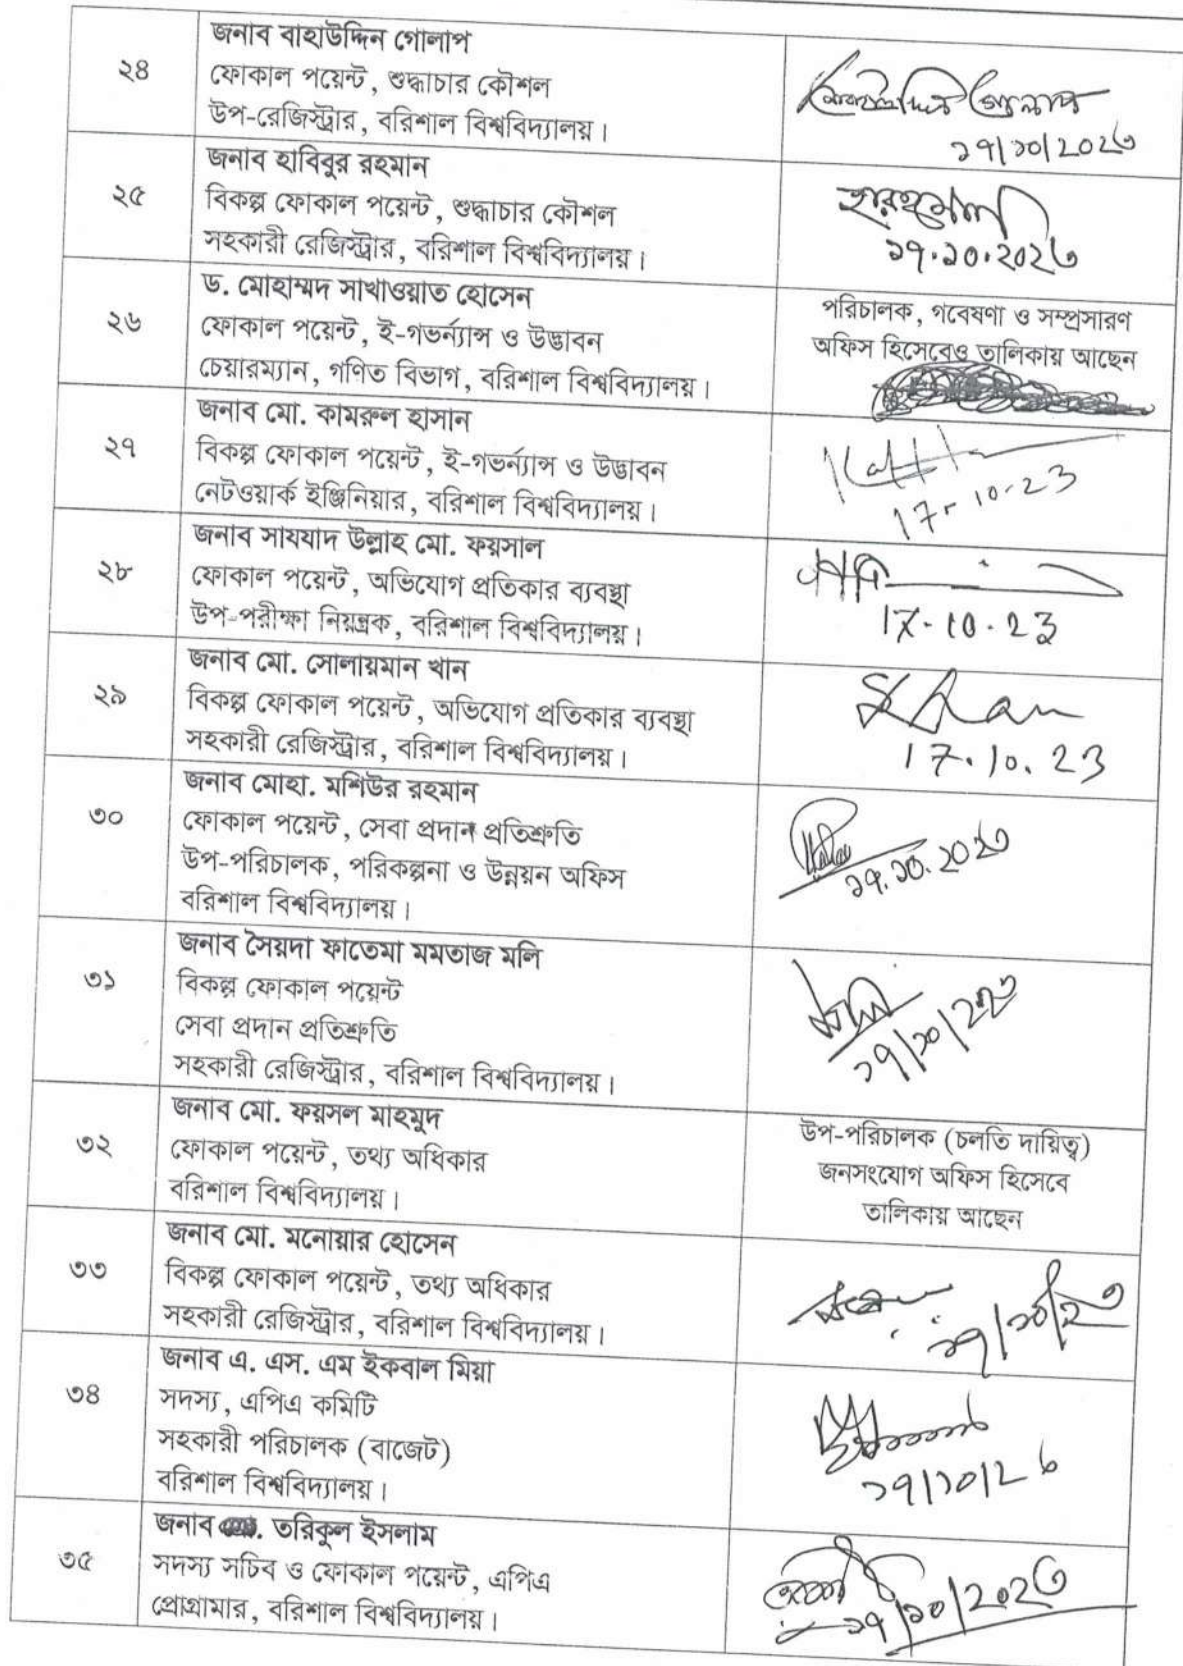 ২৪
জনাব বাহাউদ্দিন গোলাপ
ফোকাল পয়েন্ট, শুদ্ধাচার কৌশল
উপ-রেজিস্ট্রার, বরিশাল বিশ্ববিদ্যালয়।
১৭/১০/২০২৩
২৫
জনাব হাবিবুর রহমান
বিকল্প ফোকাল পয়েন্ট, শুদ্ধাচার কৌশল
সহকারী রেজিস্ট্রার, বরিশাল বিশ্ববিদ্যালয়।
১৭.১০.২০২৩
২৬
ড. মোহাম্মদ সাখাওয়াত হোসেন
ফোকাল পয়েন্ট, ই-গভর্ন্যান্স ও উদ্ভাবন
চেয়ারম্যান, গণিত বিভাগ, বরিশাল বিশ্ববিদ্যালয়।
পরিচালক, গবেষণা ও সম্প্রসারণ
অফিস হিসেবেও তালিকায় আছেন
২৭
জনাব মো. কামরুল হাসান
বিকল্প ফোকাল পয়েন্ট, ই-গভর্ন্যান্স ও উদ্ভাবন
নেটওয়ার্ক ইঞ্জিনিয়ার, বরিশাল বিশ্ববিদ্যালয়।
17-10-23
২৮
জনাব সাযযাদ উল্লাহ মো. ফয়সাল
ফোকাল পয়েন্ট, অভিযোগ প্রতিকার ব্যবস্থা
উপ-পরীক্ষা নিয়ন্ত্রক, বরিশাল বিশ্ববিদ্যালয়।
17.10.23
২৯
জনাব মো. সোলায়মান খান
বিকল্প ফোকাল পয়েন্ট, অভিযোগ প্রতিকার ব্যবস্থা
সহকারী রেজিস্ট্রার, বরিশাল বিশ্ববিদ্যালয়।
17.10.23
৩০
জনাব মোহা. মশিউর রহমান
ফোকাল পয়েন্ট, সেবা প্রদান প্রতিশ্রুতি
উপ-পরিচালক, পরিকল্পনা ও উন্নয়ন অফিস
বরিশাল বিশ্ববিদ্যালয়।
১৭.১০.২০২৩
৩১
জনাব সৈয়দা ফাতেমা মমতাজ মলি
বিকল্প ফোকাল পয়েন্ট
সেবা প্রদান প্রতিশ্রুতি
সহকারী রেজিস্ট্রার, বরিশাল বিশ্ববিদ্যালয়।
১৭/১০/২০২৩
৩২
জনাব মো. ফয়সল মাহমুদ
ফোকাল পয়েন্ট, তথ্য অধিকার
বরিশাল বিশ্ববিদ্যালয়।
উপ-পরিচালক (চলতি দায়িত্ব)
জনসংযোগ অফিস হিসেবে
তালিকায় আছেন
৩৩
জনাব মো. মনোয়ার হোসেন
বিকল্প ফোকাল পয়েন্ট, তথ্য অধিকার
সহকারী রেজিস্ট্রার, বরিশাল বিশ্ববিদ্যালয়।
১৭/১০/২৩
৩৪
জনাব এ. এস. এম ইকবাল মিয়া
সদস্য, এপিএ কমিটি
সহকারী পরিচালক (বাজেট)
বরিশাল বিশ্ববিদ্যালয়।
১৭/১০/২৩
৩৫
জনাব তরিকুল ইসলাম
সদস্য সচিব ও ফোকাল পয়েন্ট, এপিএ
প্রোগ্রামার, বরিশাল বিশ্ববিদ্যালয়।
১৭/১০/২০২৩